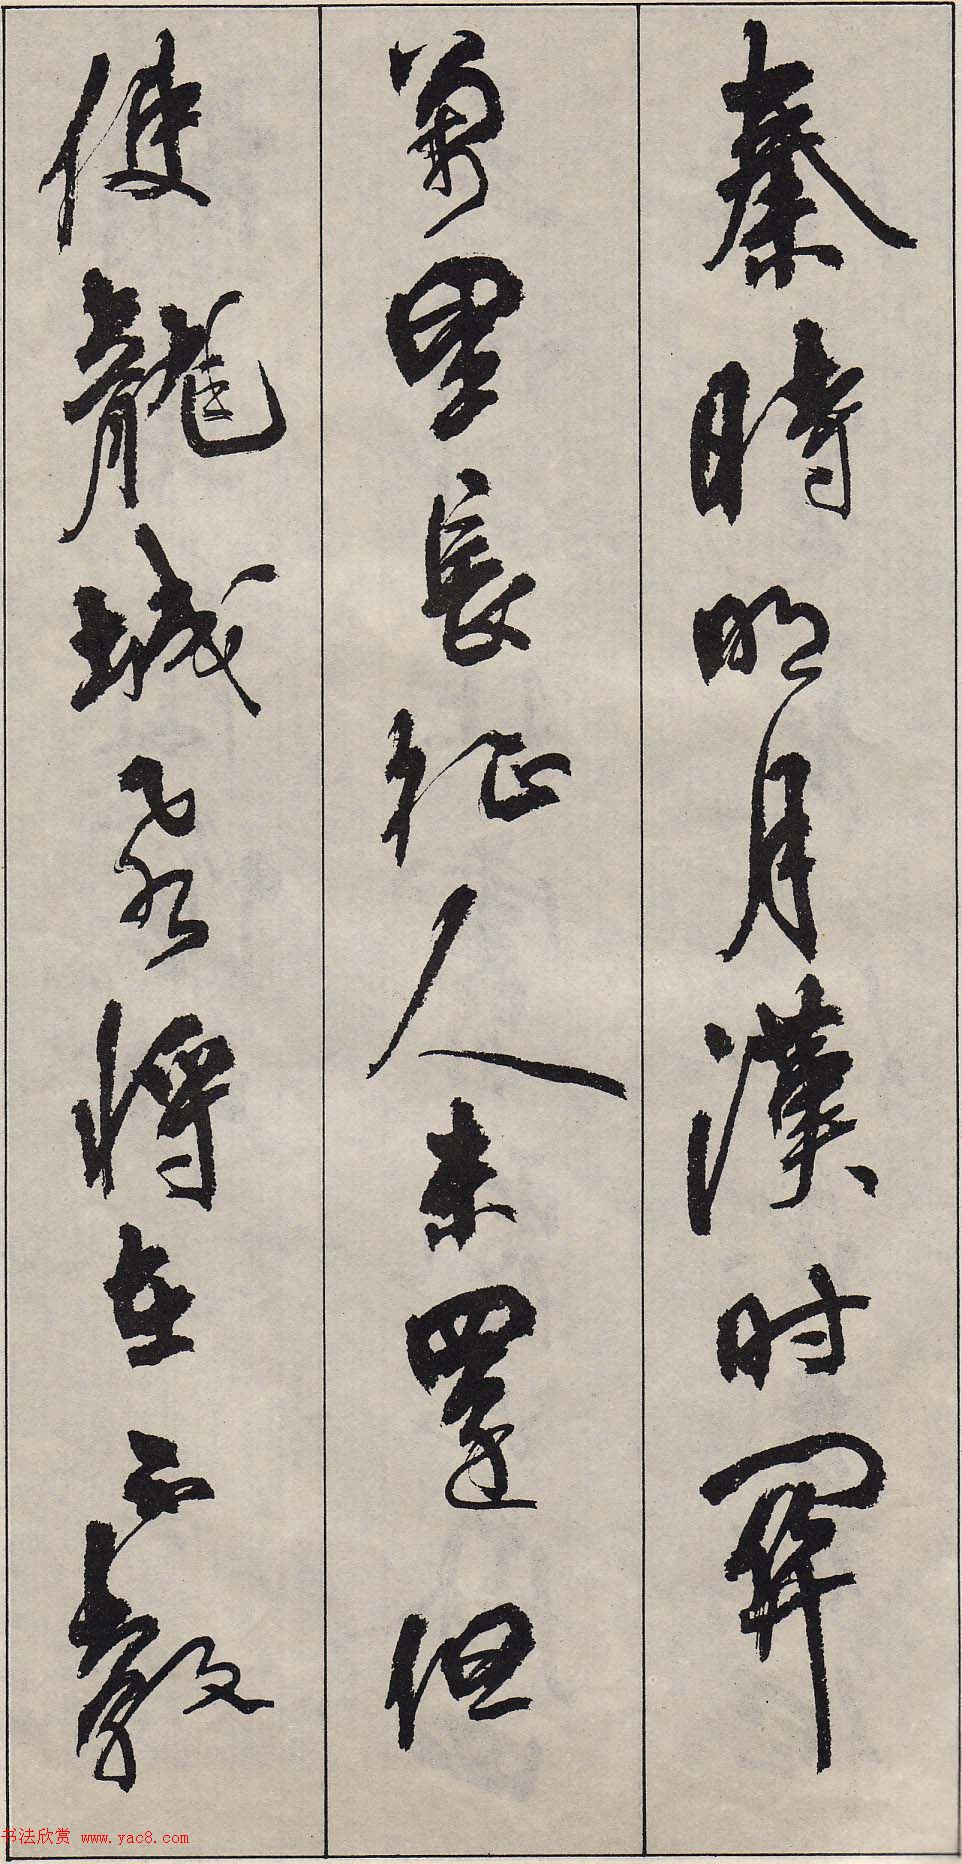 秦時明月漢时關
萬里長征人未還但
使龍城飛將在不教
书法欣赏 www.yac8.com